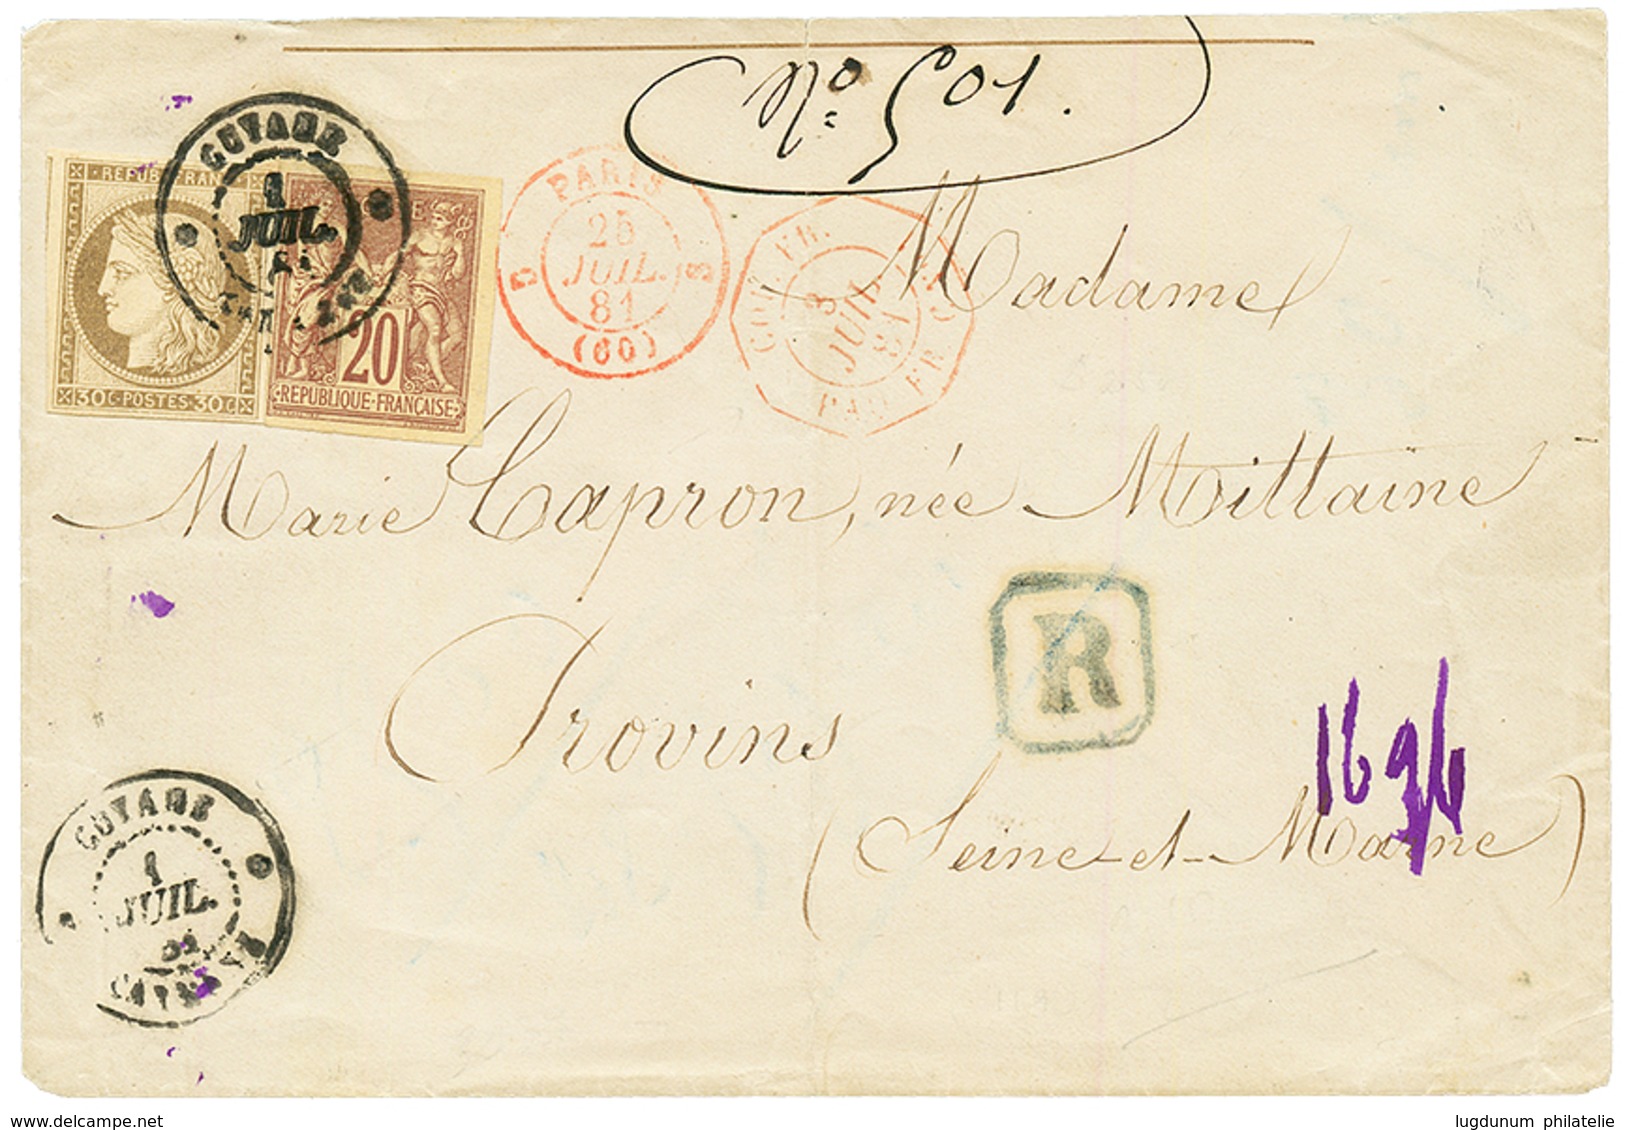 No: 501.
GUYANE
1
JUIL.
81
REPUB. FRANC.
30 C. POSTES. 30 C.
20
REPUBLIQUE FRANCAISE
PARIS
25
JUIL.
81
(60)
COL. FR.
3
JUIL
81
PAQ. FR.
Madame
Marie Capron, née Mittaine
Provins
R
1694
(Seine-et-Marne)
GUYANE
1
JUIL.
81
CAYENNE
www.delcampe.net
lugdunum philatelie